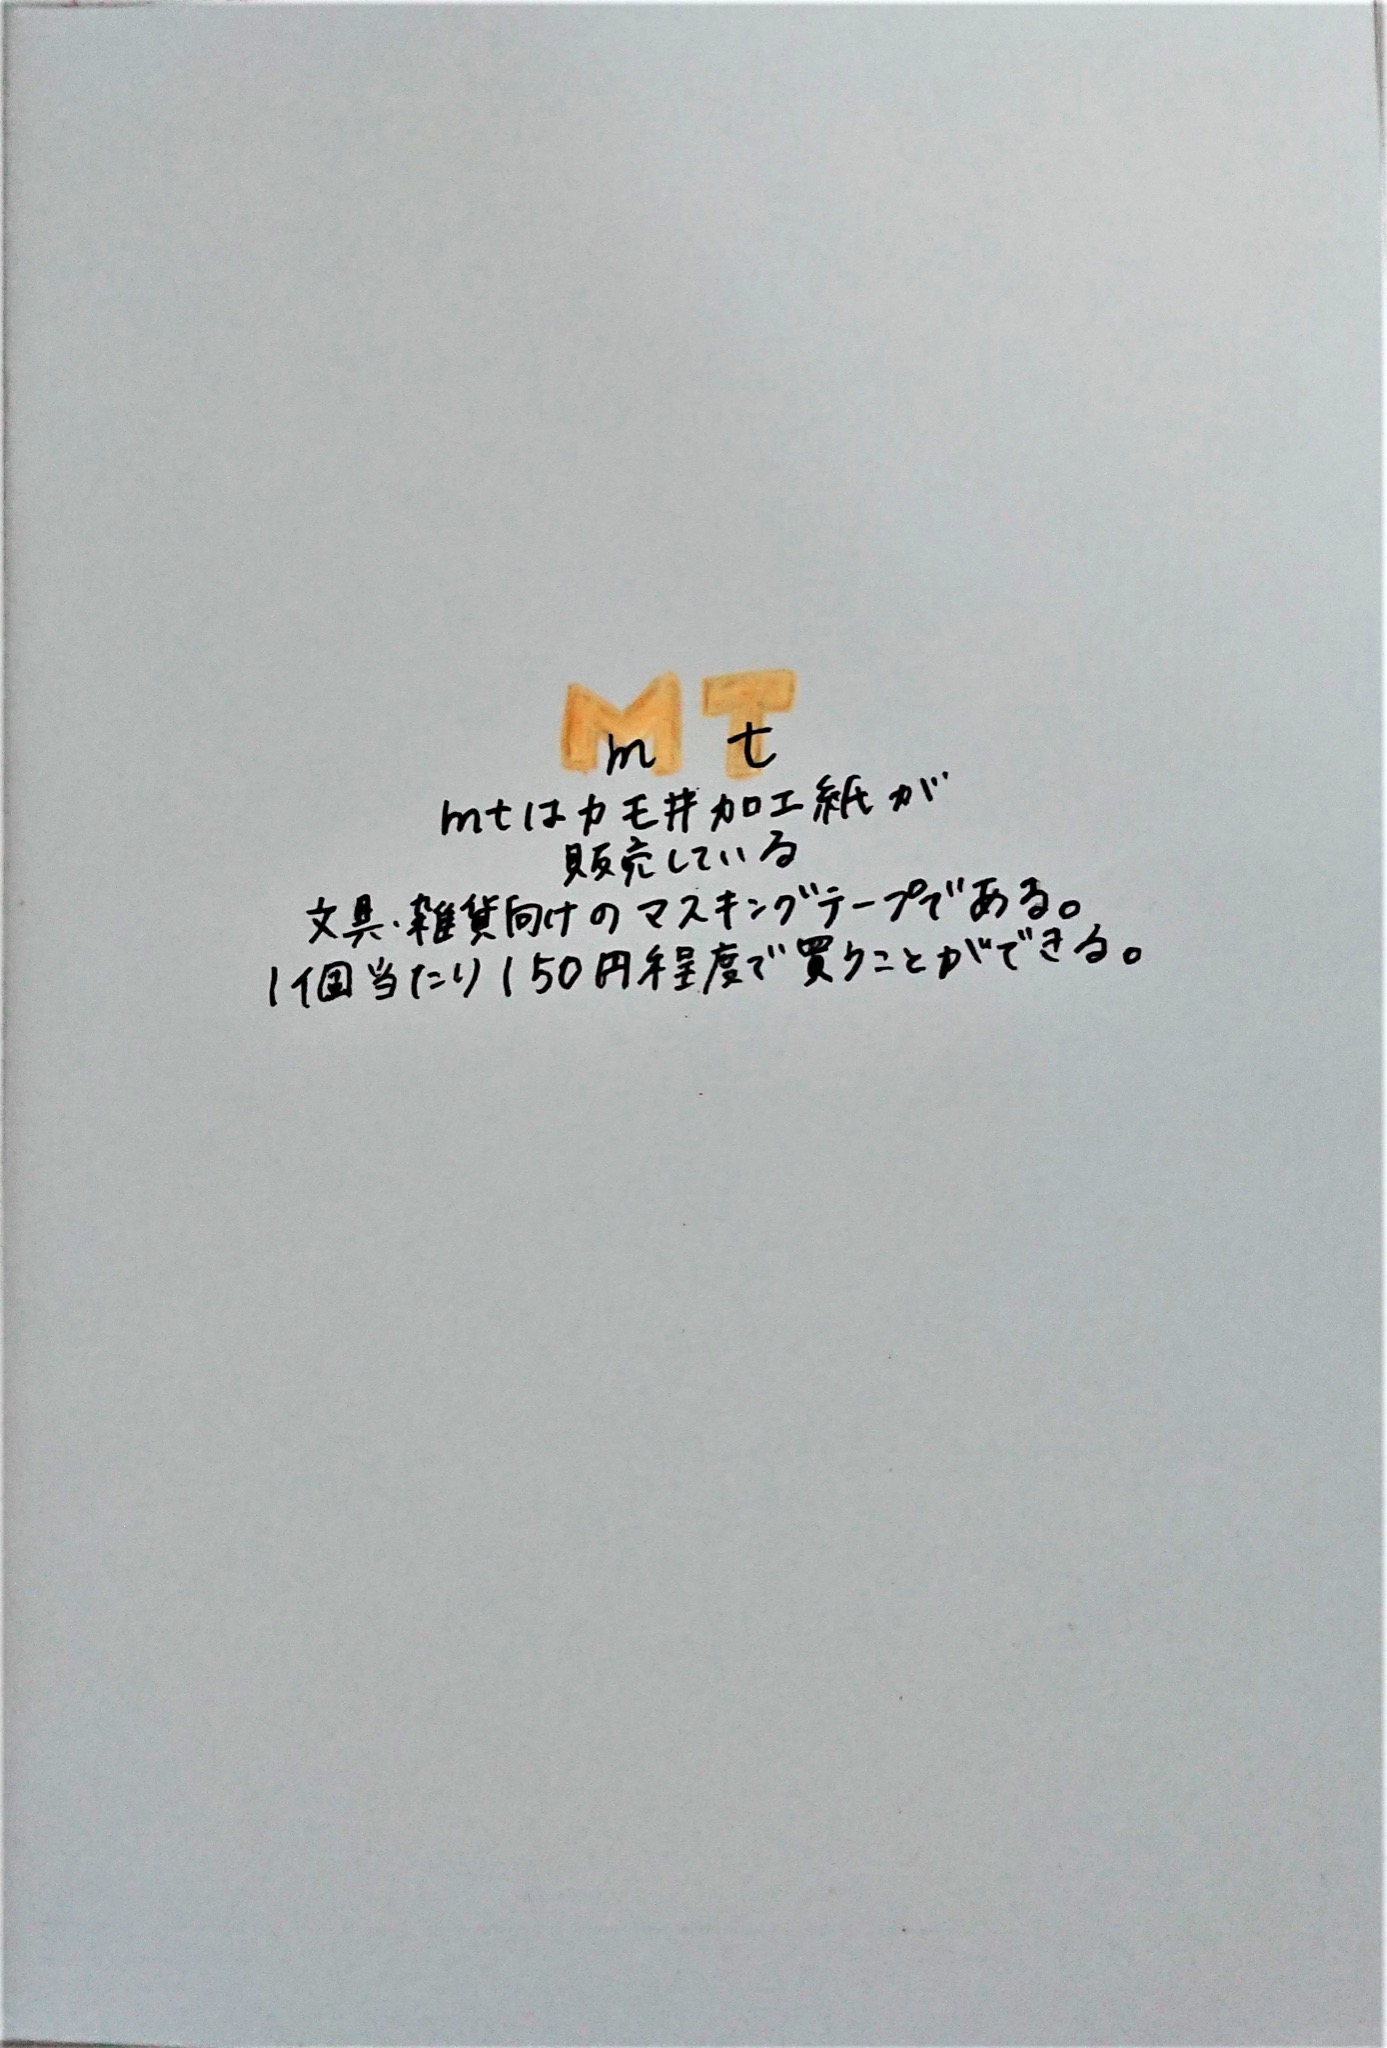 MT
m t
mtはカモ井加工紙が
販売している
文具・雑貨向けのマスキングテープである。
1個当たり150円程度で買うことができる。